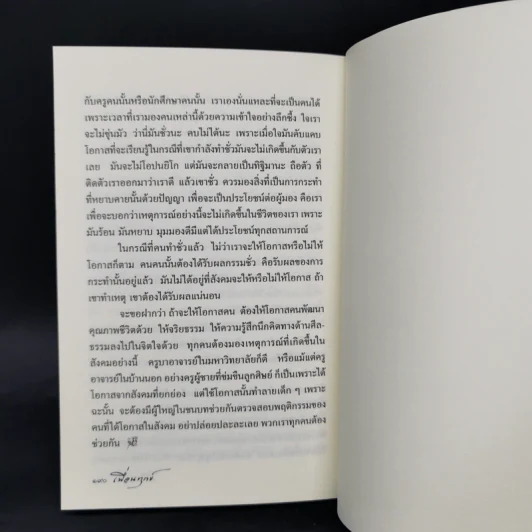 กับครูคนนั้นหรือนักศึกษาคนนั้น เราเองนั่นแหละที่จะเป็นคนได้
เพราะเวลาที่เรามองคนเหล่านี้ด้วยความเข้าใจอย่างลึกซึ้ง ใจเรา
จะไม่ขุ่นมัว ว่านี่มันชั่วนะ คบไม่ได้นะ เพราะเมื่อใจมันคับแคบ
โอกาสที่จะเรียนรู้ในกรณีที่เขากำลังทำชั่วมันจะไม่เกิดขึ้นกับตัวเรา
เลย มันจะไม่โอปนยิโก แต่มันจะกลายเป็นทิฐิมานะ ถือตัว ที่
ติดตัวเราออกมาว่าเราดี แล้วเขาชั่ว ควรมองสิ่งที่เป็นการกระทำ
ที่หยาบคายนั้นด้วยปัญญา เพื่อจะเป็นประโยชน์ต่อผู้มอง คือเรา
เพื่อจะบอกว่าเหตุการณ์อย่างนี้จะไม่เกิดขึ้นในชีวิตของเรา เพราะ
มันร้อน มันหยาบ มุมมองดีมีแต่ได้ประโยชน์ทุกสถานการณ์
ในกรณีที่คนทำชั่วแล้ว ไม่ว่าเราจะให้โอกาสหรือไม่ให้
โอกาสก็ตาม คนคนนั้นต้องได้รับผลกรรมชั่ว คือรับผลของการ
กระทำนั้นอยู่แล้ว มันไม่ได้อยู่ที่สังคมจะให้หรือไม่ให้โอกาส ถ้า
เขาทำเหตุ เขาต้องได้รับผลแน่นอน
จะขอฝากว่า ถ้าจะให้โอกาสคน ต้องให้โอกาสคนพัฒนา
คุณภาพชีวิตด้วย ให้จริยธรรม ให้ความรู้สึกนึกคิดทางด้านศีล-
ธรรมลงไปในจิตใจด้วย ทุกคนต้องมองเหตุการณ์ที่เกิดขึ้นใน
สังคมอย่างนี้ ครูบาอาจารย์ในมหาวิทยาลัยก็ดี หรือแม้แต่ครู
อาจารย์ในบ้านนอก อย่างครูผู้ชายที่ข่มขืนลูกศิษย์ ก็เป็นเพราะได้
โอกาสจากสังคมที่ยกย่อง แต่ใช้โอกาสนั้นทำลายเด็ก ๆ เพราะ
ฉะนั้น จะต้องมีผู้ใหญ่ในชนบทช่วยกันตรวจสอบพฤติกรรมของ
คนที่ได้โอกาสในสังคม อย่าปล่อยปละละเลย พวกเราทุกคนต้อง
ช่วยกัน
๑๙๐ เพื่อนทุกข์